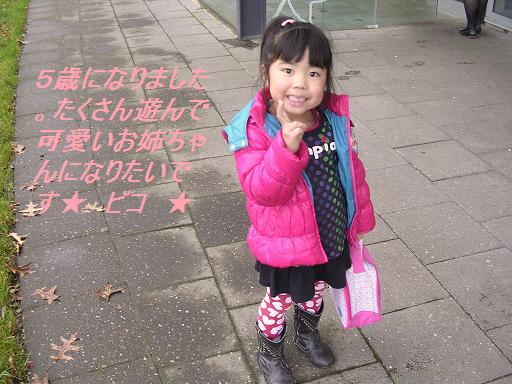 ５歳になりました
。たくさん遊んで
可愛いお姉ちゃ
んになりたいで
す★　ピコ　★